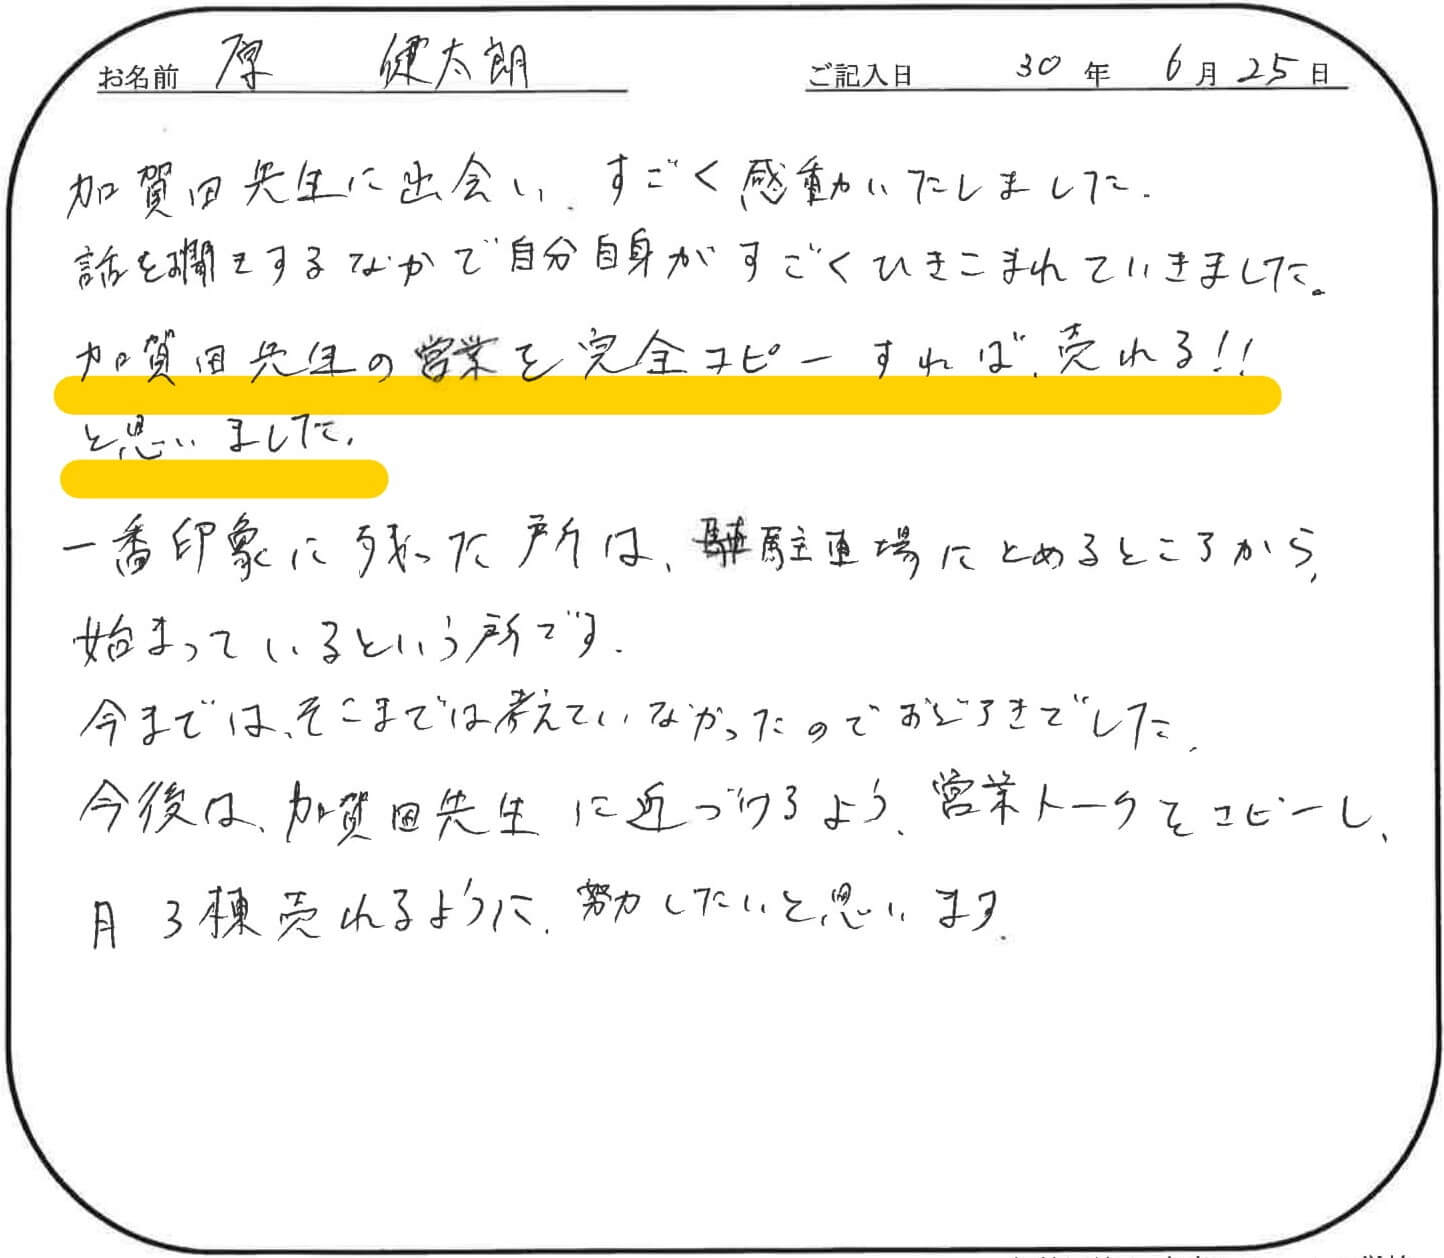 お名前 原 健太朗 ご記入日 30年 6月25日
加賀田先生に出会い、すごく感動いたしました.
話をお聞きするなかで自分自身がすごくひきこまれていきました。
加賀田先生の営業を完全コピーすれば、売れる!!
と思いました.
一番印象に残った所は、駐車場にとめるところから、
始まっているという所です.
今までは、そこまでは考えていなかったのでおどろきでした.
今後は、加賀田先生に近づけるよう、営業トークをコピーし、
月3棟売れるように、努力したいと思います.